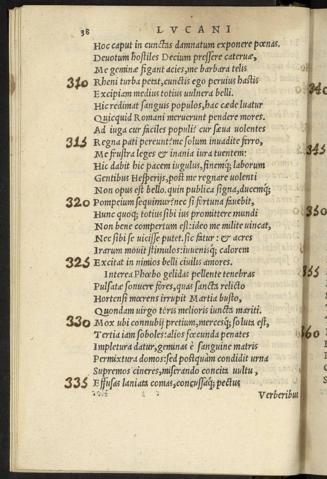 38 LVCANI
Hoc caput in cunctas damnatum exponere pœnas.
Deuotum hostiles Decium pressere cateruæ,
Me geminæ figant acies, me barbara telis
310 Rheni turba petat, cunctis ego peruius hastis
Excipiam medius totius uulnera belli.
Hic redimat sanguis populos, hac cæde luatur
Quicquid Romani meruerunt pendere mores.
Ad iuga cur faciles populi? cur sæua uolentes
315 Regna pati pereunt? me solum inuadite ferro,
Me frustra leges & inania iura tuentem:
Hic dabit hic pacem iugulus, finemq; laborum
Gentibus Hesperijs, post me regnare uolenti
Non opus est bello. quin publica signa, ducemq;
320 Pompeium sequimur? nec si fortuna fauebit,
Hunc quoq; totius sibi ius promittere mundi
Non bene compertum est: ideo me milite uincat,
Nec sibi se uicisse putet. sic fatur: & acres
Irarum mouit stimulos: iuuenisq; calorem
325 Excitat in nimios belli ciuilis amores.
Interea Phœbo gelidas pellente tenebras
Pulsatæ sonuere fores, quas sancta relicto
Hortensi mœrens irrupit Martia busto,
Quondam uirgo toris melioris iuncta mariti.
330 Mox ubi connubij pretium, mercesq; soluta est,
Tertia iam soboles: alios fœcunda penates
Impletura datur, geminas è sanguine matris
Permixtura domos: sed postquàm condidit urna
Supremos cineres, miserando concita uultu,
335 Effusas laniata comas, concussaq; pectus
Verberibus
345
355
360